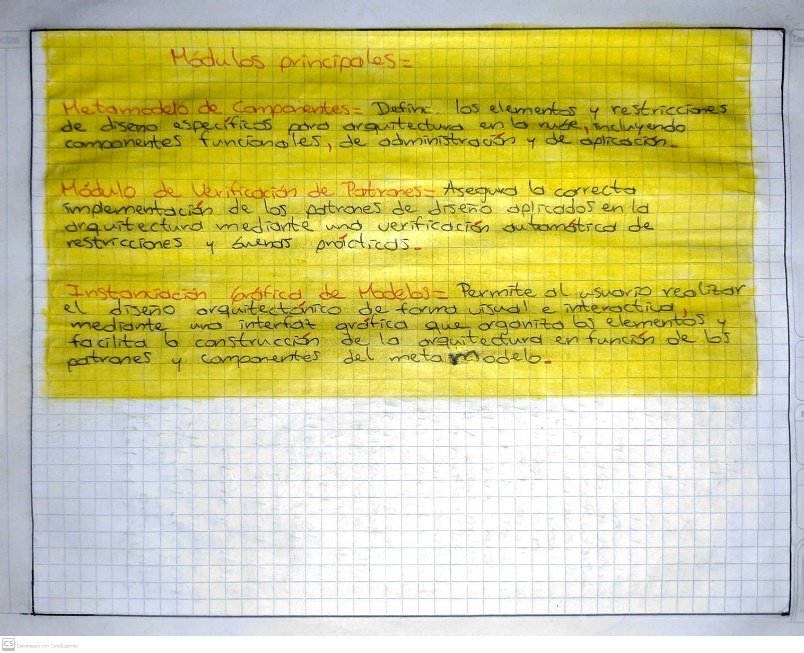 Módulos principales=
Metamodelo de Componentes= Define los elementos y restricciones
de diseño específicos para arquitectura en la nube, incluyendo
componentes funcionales, de administración y de aplicación.
Módulo de Verificación de Patrones= Asegura la correcta
implementación de los patrones de diseño aplicados en la
arquitectura mediante una verificación automática de
restricciones y buenas prácticas.
Instanciación Gráfica de Modelos= Permite al usuario realizar
el diseño arquitectónico de forma visual e interactiva,
mediante una interfaz gráfica que organiza los elementos y
facilita la construcción de la arquitectura en función de los
patrones y componentes del metamodelo.
CS Escaneado con CamScanner